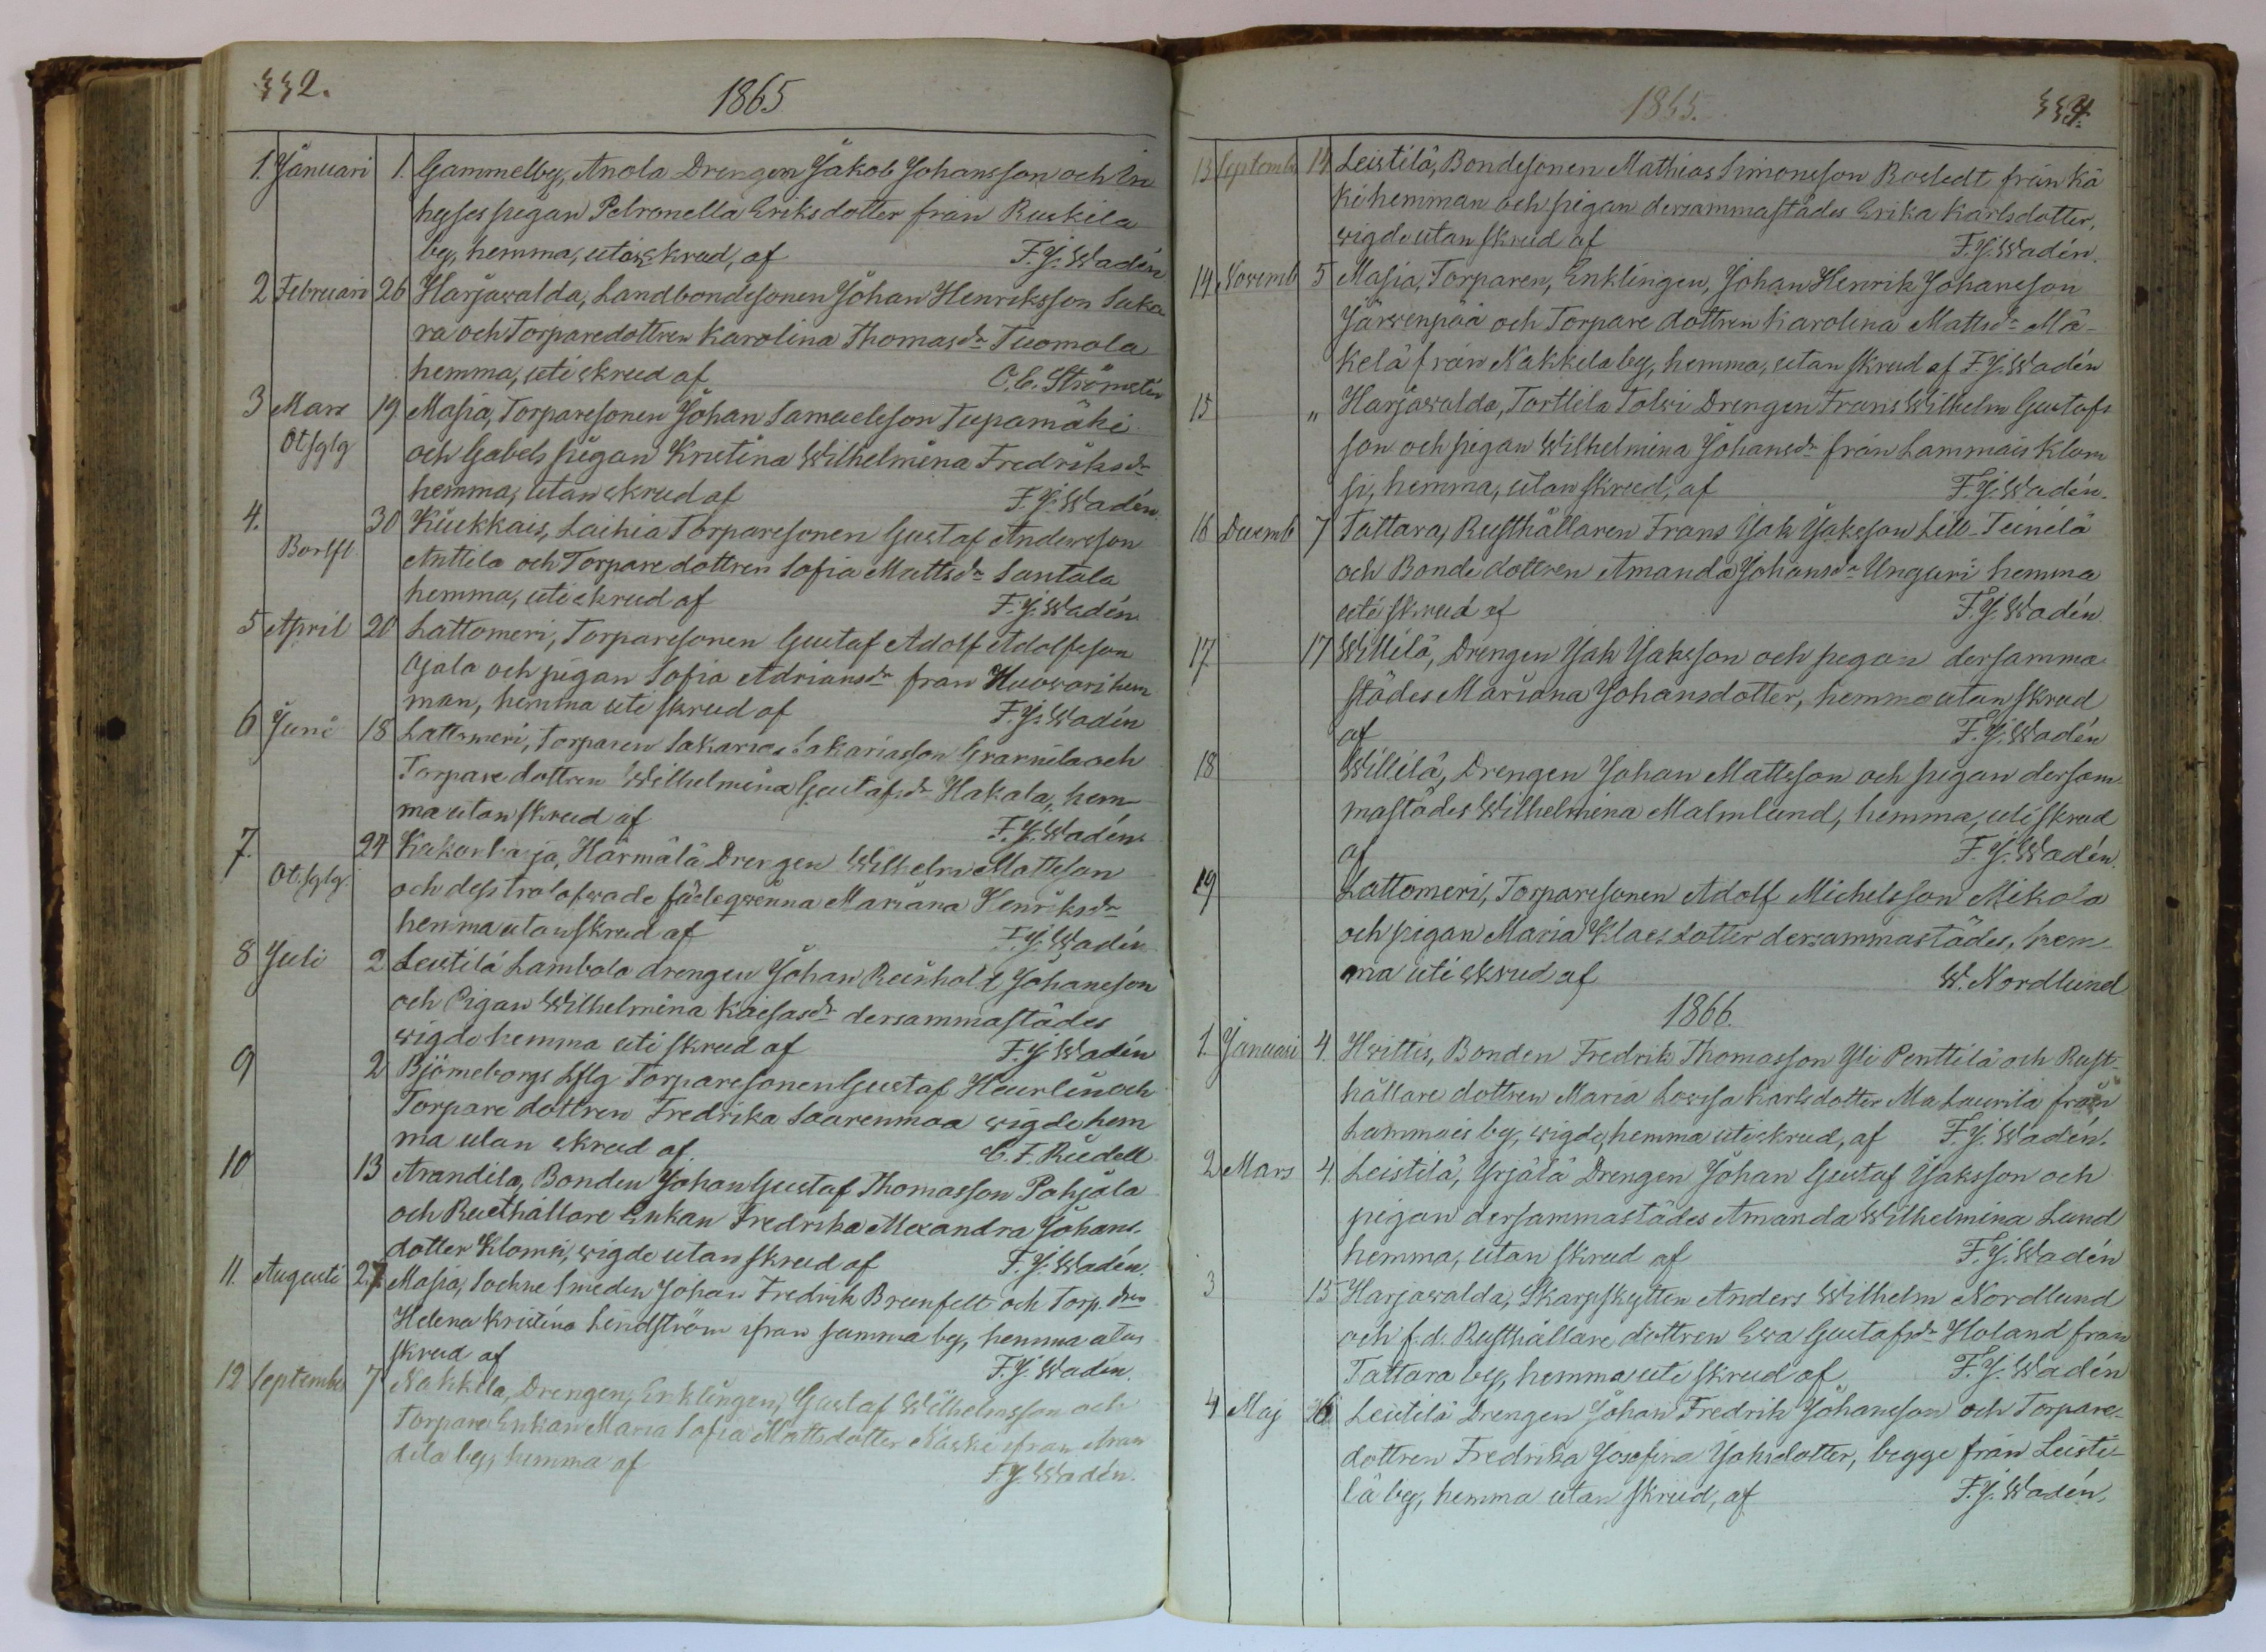 332.
1865
1. Januari 1. Gammelby, Anola Drengen Jakob Johansson och In
hyses pigan Petronella Eriksdotter från Ruskila
by, hemma, uti skrud, af F. J. Wadén
2 Februari 26 Harjawalda, Landbondesonen Johan Henriksson Saka
ra och Torparedottren Karolina Thomasdr Tuomola
hemma, uti skrud af C. E. Strömsten
3 Mars 19 Masia, Torparesonen Johan Samuelsson Tupamäki
Otsglg och Gabels pigan Kristina Wilhelmina Fredriksdr
hemma, utan skrud af F. J. Wadén.
4. 30 Kiukkais, Laihia Torparesonen Gustaf Andersson
Borlfl. Anttila och Torpare dottren Sofia Mattsdr Santala
hemma, uti skrud af F. J. Wadén
5 April 20 Lattomeri, Torparesonen Gustaf Adolf Adolfsson
Ojala och pigan Sofia Adriansdr från Huowari hem
man, hemma uti skrud af F. J. Wadén
6 Juni 18 Lattomeri, Torparen Sakarias Sakariasson Grannila och
Torpare dottren Wilhelmina Gustafsdr Hakala, hem-
ma utan skrud af F. J. Wadén
7. 24 Kukonharja, Härmälä Drengen Wilhelm Mattsson
Ot. sglg. och dess trolofwade fästeqwinna Mariana Henriksdr
hemma utan skrud af F. J. Wadén
8 Juli 2 Leistilä Lambola drengen Johan Reinholt Johansson
och Pigan Wilhelmina Kaisasdr dersammastädes
wigde hemma uti skrud af F. J. Wadén
9 2 Björneborgs Lflg Torparesonen Gustaf Heurlin och
Torpare dottren Fredrika Saarenmaa wigde hem
ma utan skrud af. C. F. Riedell
10 13 Arandila, Bonden Johan Gustaf Thomasson Pohjala
och Rusthållare Enkan Fredrika Alexandra Johans-
dotter Klomsi, wigde utan skrud af F. J. Wadén.
11. Augusti 27. Masia, Sockne Smeden Johan Fredrik Brunfelt och Torp. dren
Helena Kristina Lindström ifrån samma by, hemma utan
skrud af F. J. Wadén.
12 September 7 Nakkila, Drengen, Enklingen, Gustaf Wilhelmsson och
Torpare Enkan Maria Sofia Mattsdotter Näski ifrån Aran
dila by, hemma af F. J. Wadén.
1865.
334.
13 Septemb. 14 Leistilä, Bondesonen Mathias Simonsson Rostedt från Kä
ki hemman och pigan dersammastädes Erika Karlsdotter,
wigde utan skrud af F. J. Wadén.
14 Novemb 5 Masia, Torparen, Enklingen, Johan Henrik Johansson
Järwenpää och Torpare dottren Karolina Mattsdr Mä-
kelä från Nakkila by, hemma, utan skrud af F. J. Wadén
15 " Harjawalda, Torttila Tolwi Drengen Frans Wilhelm Gustafs
son och pigan Wilhelmina Johansdr från Lammais Klom
si, hemma, utan skrud, af F. J. Wadén.
16 Decemb 7 Tattara, Rusthållaren Frans Jak Jaksson Lill-Teinilä
och Bonde dottren Amanda Johansdr Unguri hemma
uti skrud af F. J. Wadén
17. 17 Willilä, Drengen Jak Jaksson och pigan dersamma
städes Mariana Johansdotter, hemma utan skrud
af F. J. Wadén
18 Willilä, Drengen Johan Mattsson och pigan dersam-
mastädes Wilhelmina Malmlund, hemma, uti skrud
af F. J. Wadén.
19 Lattomeri, Torparesonen Adolf Michelsson Mikola
och pigan Maria Klaes dotter dersammastädes, hem-
ma uti skrud af W. Nordlund
1866.
1. Januari 4. Hvittis, Bonden Fredrik Thomasson Yli Penttilä och Rust-
hållare dottren Maria Lovisa Karlsdotter Ala Laurila från
Lammais by, wigde, hemma uti skrud, af F. J. Wadén.
2 Mars 4. Leistilä, Yrjälä Drengen Johan Gustaf Jaksson och
pigan dersammastädes Amanda Wilhelmina Lund
hemma, utan skrud af F. J. Wadén
3 15 Harjawalda, Skarpskytten Anders Wilhelm Nordlund
och f.d. Rusthållare dottren Ewa Gustafsdr Holand från
Tattara by, hemma uti skrud af F. J. Wadén
4 Maj Leistilä Drengen Johan Fredrik Johansson och Torpare-
dottren Fredrika Josefina Jaksdotter, begge från Leisti-
lä by, hemma utan skrud, af F. J. Wadén.